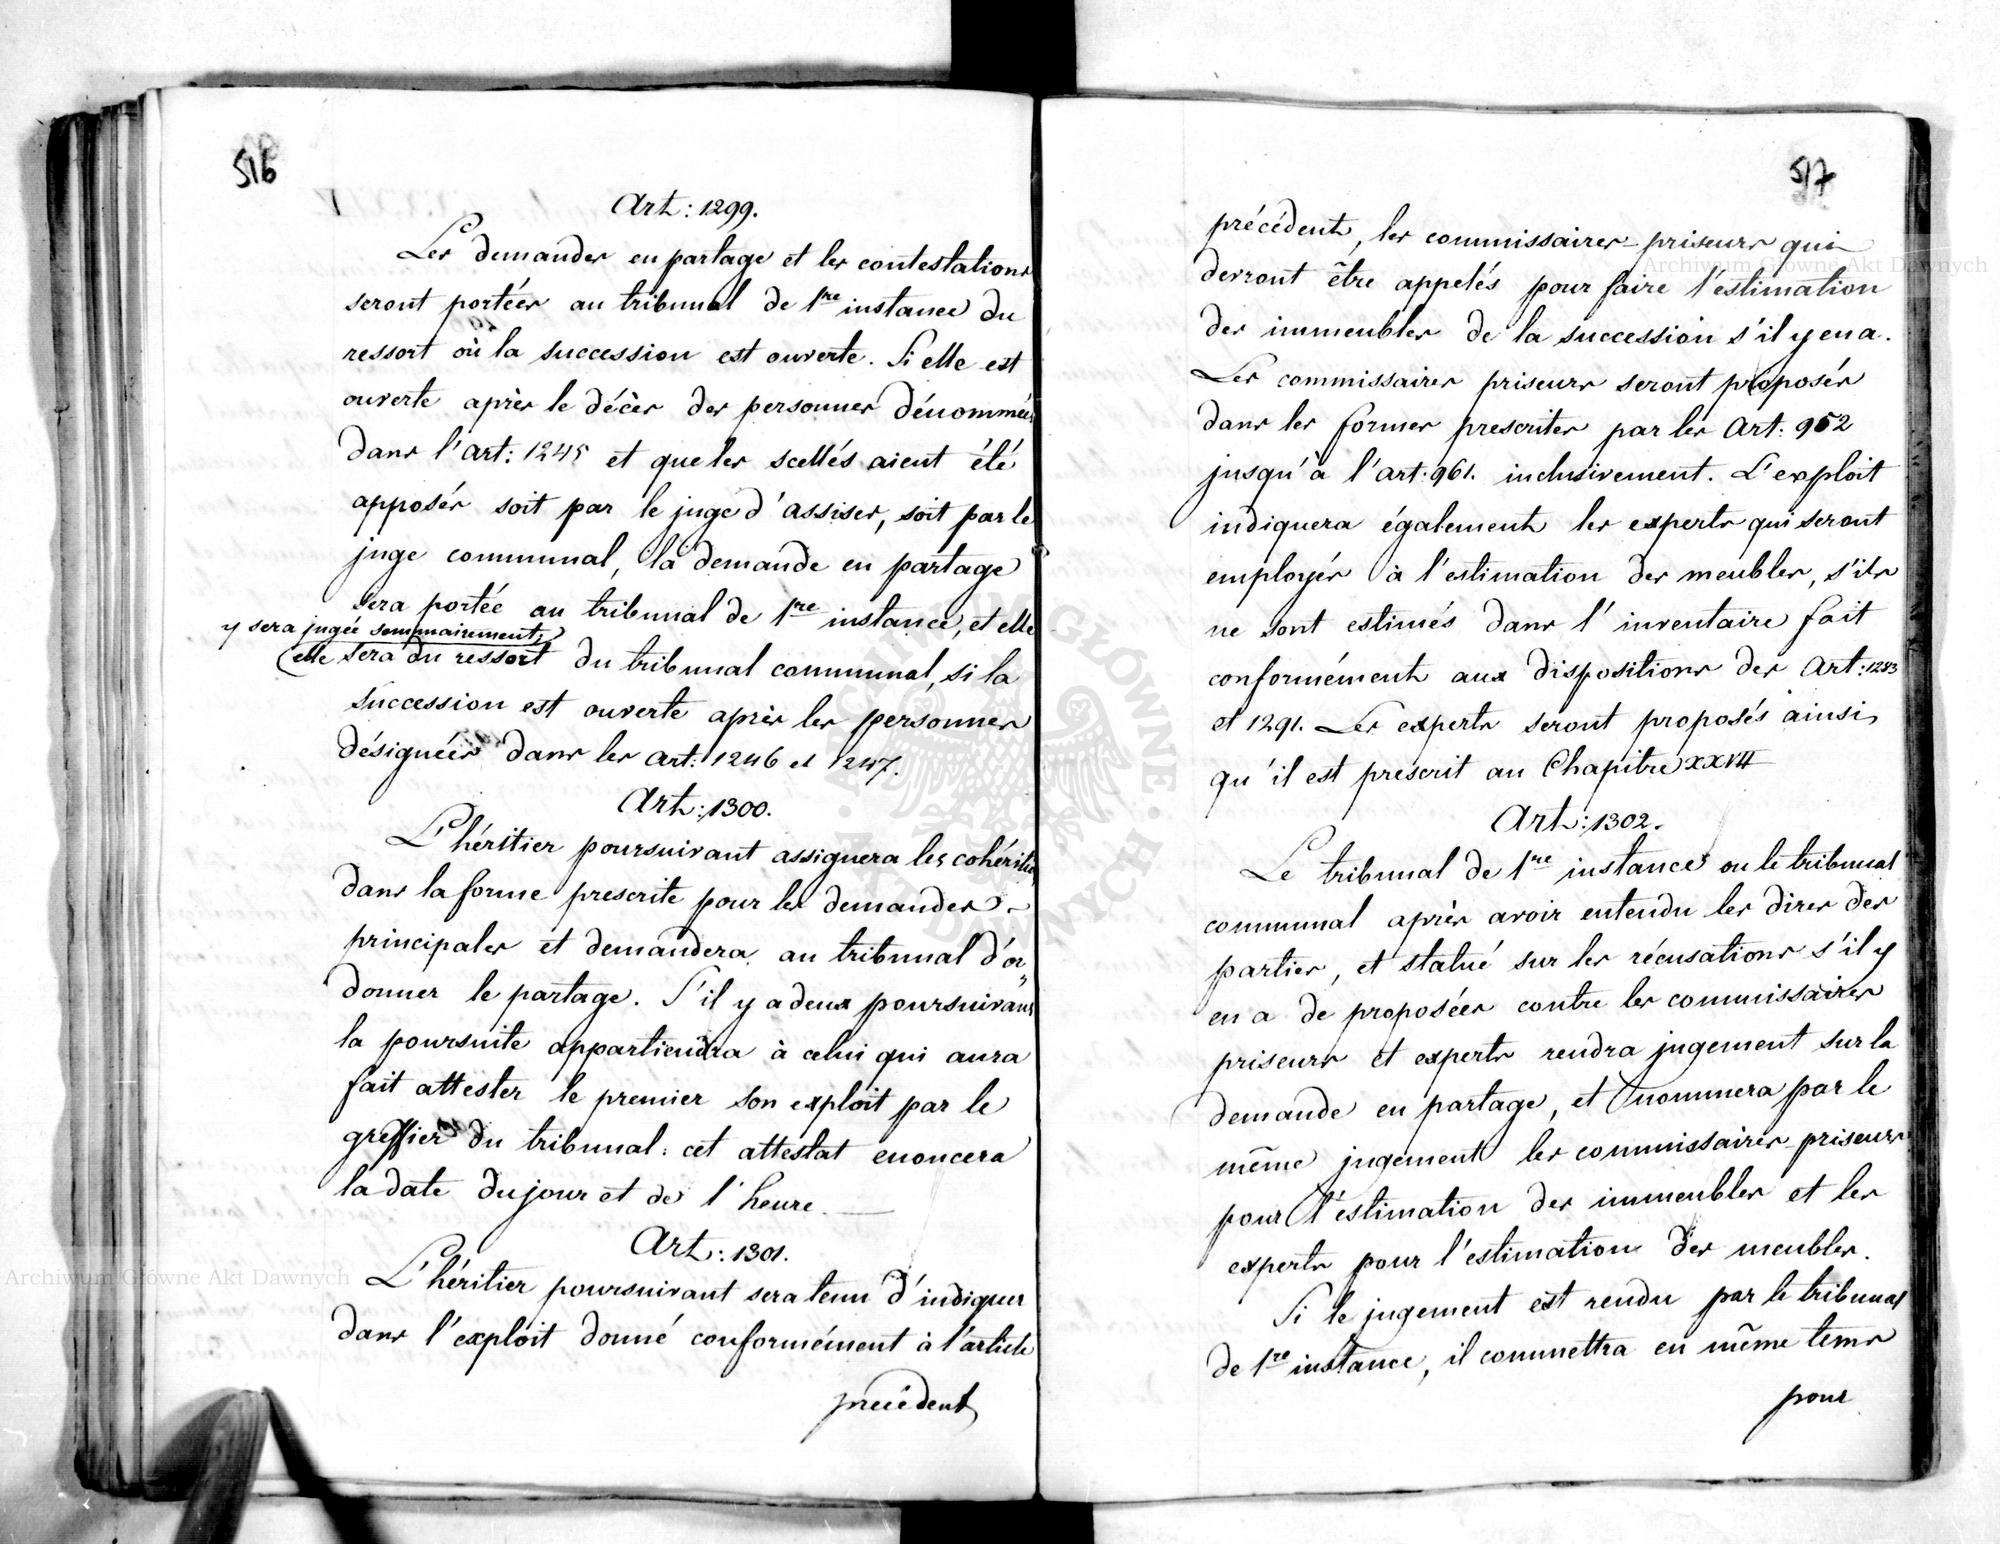 516
Art: 1299.
Les demandes en partage et les contestations
seront portées au tribunal de 1re instance du
ressort où la succession est ouverte. Si elle est
ouverte après le décès des personnes dénommées
dans l'art: 1245 et que les scellés aient été
apposés soit par le juge d'assises, soit par le
juge communal, la demande en partage
sera portée au tribunal de 1re instance, et elle
y sera jugée sommairement,
elle sera du ressort du tribunal communal, si la
succession est ouverte après les personnes
désignées dans les art: 1246 et 1247.
Art: 1300.
L'héritier poursuivant assignera les cohéritiers
dans la forme prescrite pour les demandes
principales et demandera au tribunal d'or
donner le partage. S'il y a deux poursuivans
la poursuite appartiendra à celui qui aura
fait attester le premier son exploit par le
greffier du tribunal: cet attestat enoncera
la date du jour et de l'heure.
Art: 1301.
L'héritier poursuivant sera tenu d'indiquer
dans l'exploit donné conformément à l'article
précédent
517
précédent, les commissaires-priseurs qui
devront être appelés pour faire l'estimation
des immeubles de la succession s'il y en a.
Les commissaires priseurs seront proposés
dans les formes prescrites par les Art: 952
jusqu'à l'art: 961. inclusivement. L'exploit
indiquera également les experts qui seront
employés à l'estimation des meubles, s'ils
ne sont estimés dans l'inventaire fait
conformément aux dispositions des Art: 1283
et 1291. Les experts seront proposés ainsi
qu'il est prescrit au Chapitre XXVII
Art: 1302.
Le tribunal de 1re instance ou le tribunal
communal après avoir entendu les dires des
parties, et statué sur les récusations s'il y
en a de proposées contre les commissaires
priseurs et experts rendra jugement sur la
demande en partage, et nommera par le
même jugement les commissaires-priseurs
pour l'estimation des immeubles et les
experts pour l'estimation des meubles.
Si le jugement est rendu par le tribunal
de 1re instance, il commettra en même tems
pour
Archiwum Główne Akt Dawnych
Archiwum Główne Akt Dawnych
ARCHIWUM GŁÓWNE · AKT DAWNYCH ·